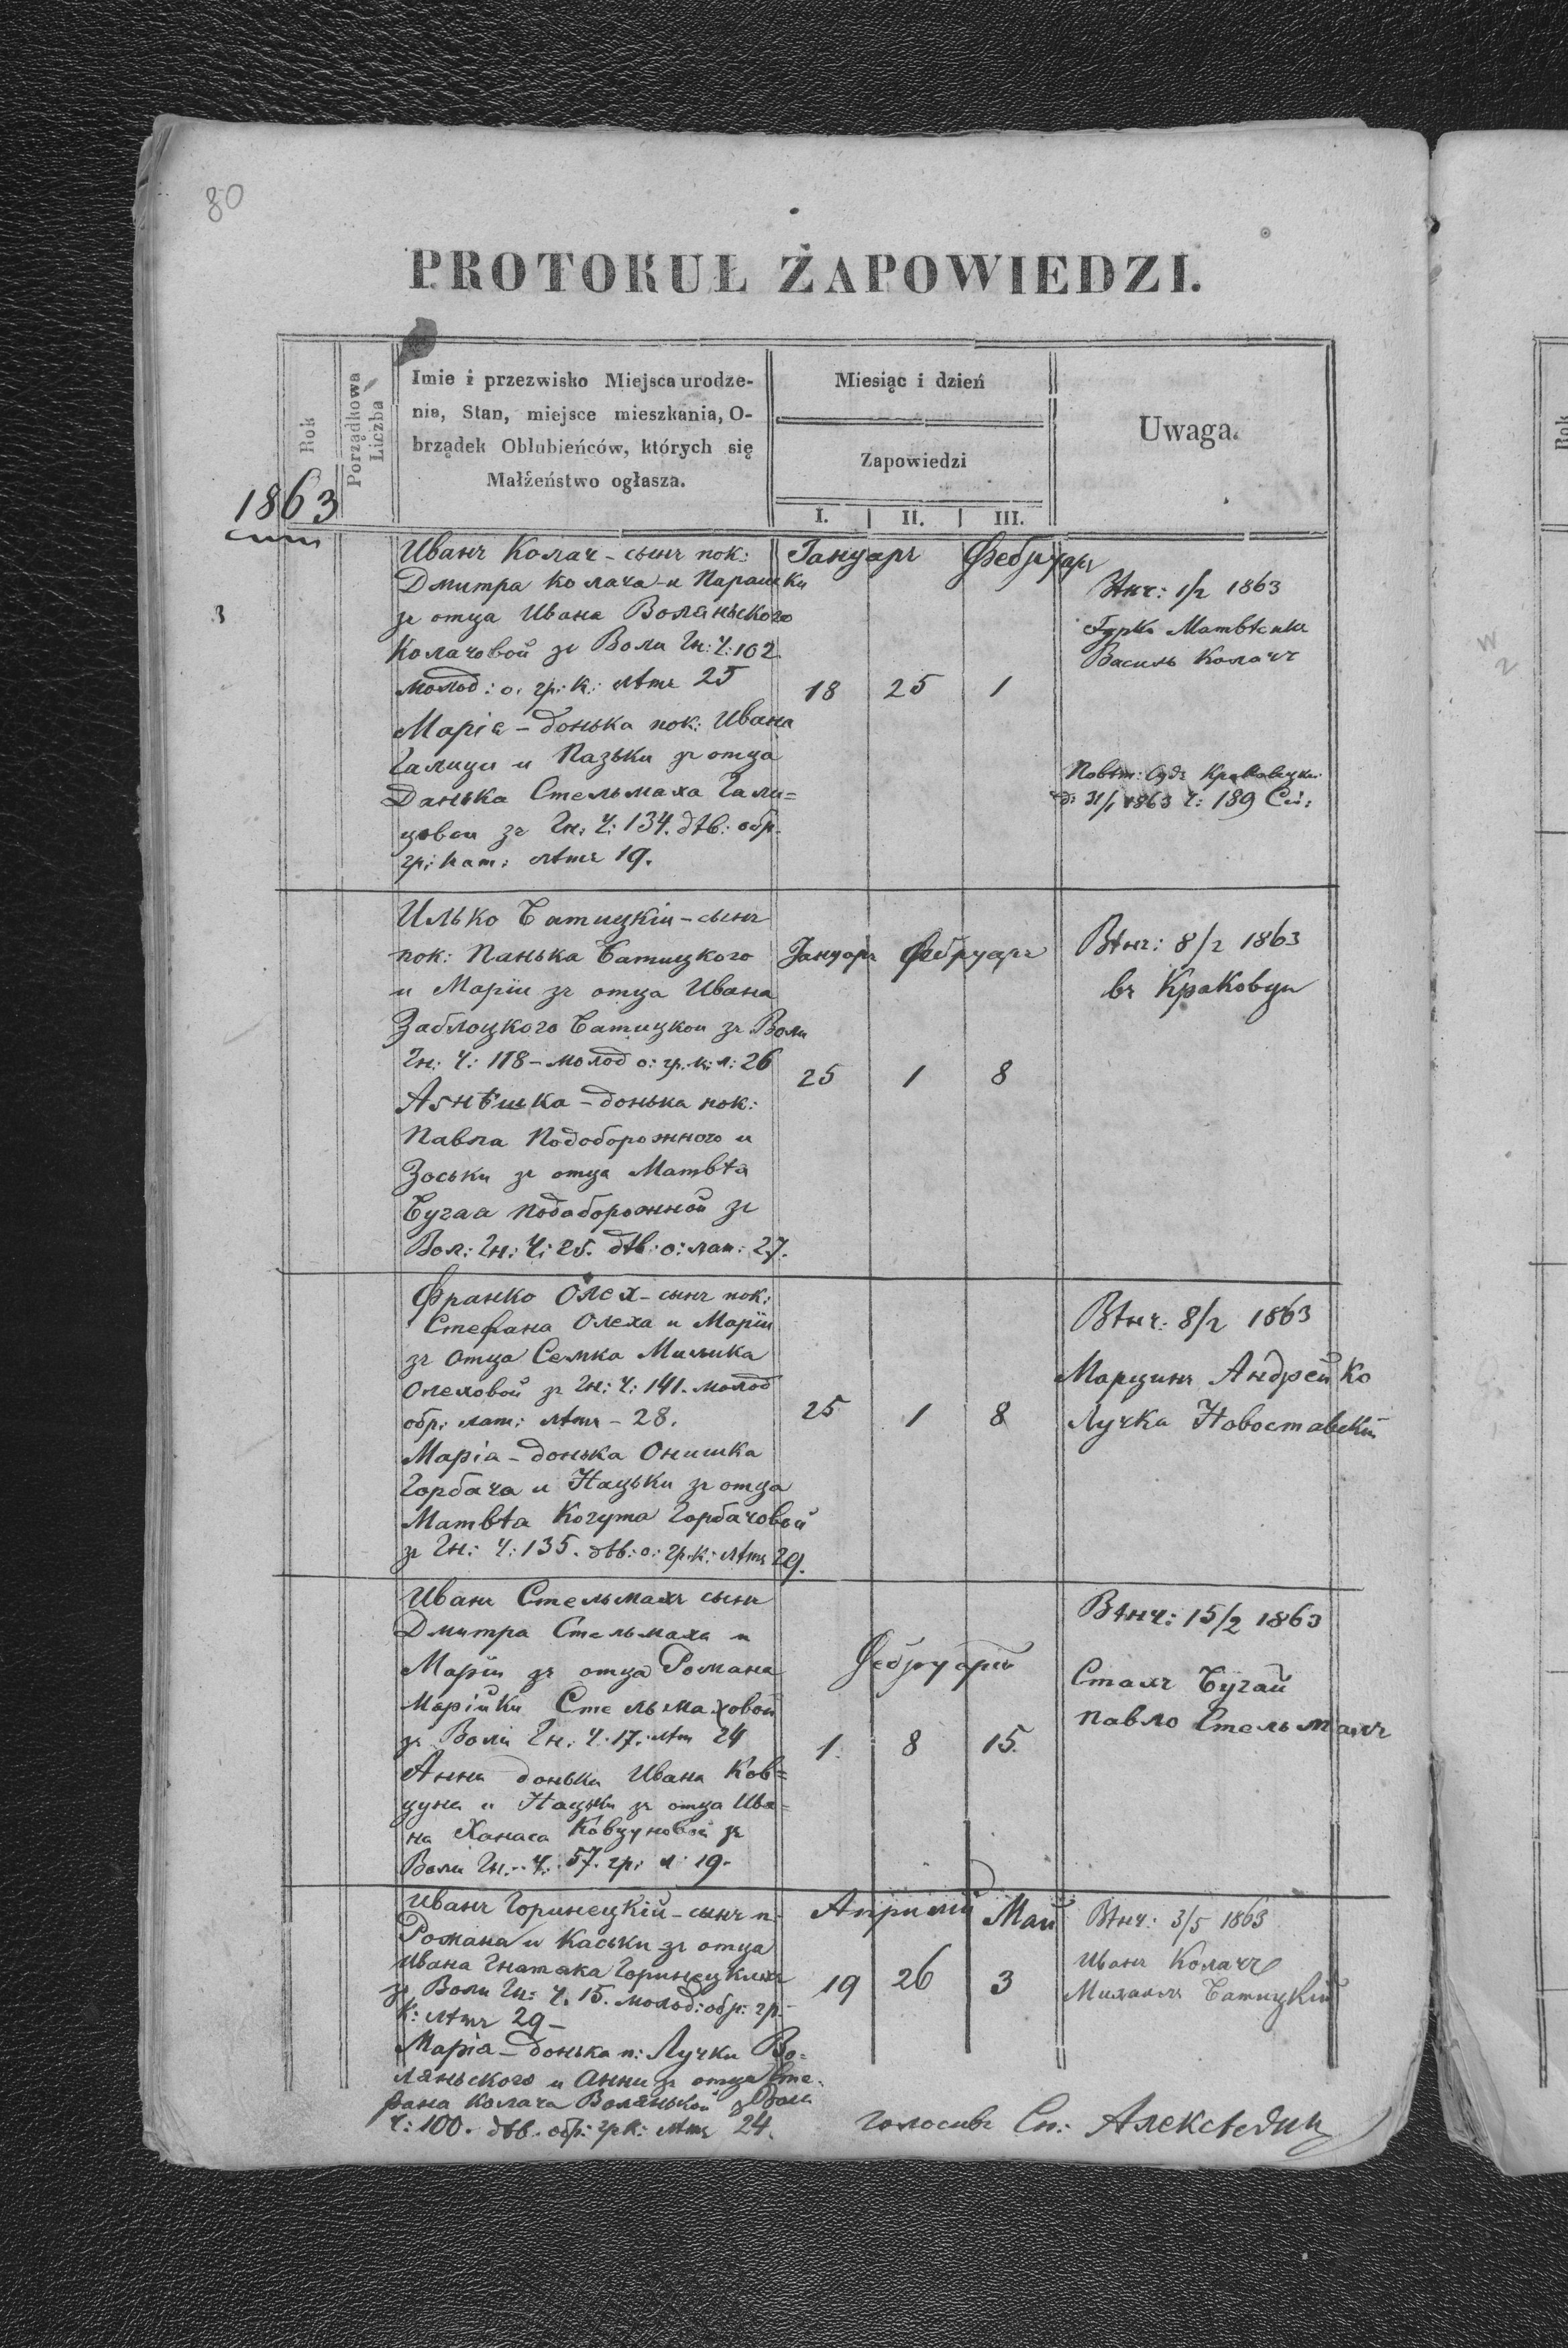 80
PROTOKUŁ ŻAPOWIEDZI.
Rok
Porządkowa Liczba
Imie i przezwisko Miejsca urodze-
nia, Stan, miejsce mieszkania, O-
brządek Oblubieńców, których się
Małżeństwo ogłasza.
Miesiąc i dzień
Zapowiedzi
I. II. III.
Uwaga.
1863
3
Иванъ Колач - сынъ пок:
Дмитра Колача и Парашки
зъ отца Ивана Воляньского
Колачовой зъ Воли Гн: Ч: 102
молод: о. гр: к: лѣтъ 25
Марія - донька пок: Ивана
Галици и Пазьки зъ отца
Данька Стельмаха Гали=
цовои зъ Гн: Ч: 134. дѣв: обр.
гр: кат: лѣтъ 19.
Януаръ Фебруаръ
18 25 1
Вѣнч: 1/2 1863
Василь Колачъ
Повѣт: Судъ
д: 31/1 1863 Ч: 189
Илько Батицкій - сынъ
пок: Панька Батицкого
и Маріи зъ отца Ивана
Заблоцкого Батицкои зъ Воли
Гн: Ч: 118 - молод о: гр. к: л: 26
Агнѣшка - донька пок:
Павла Подоборожного и
Зоськи зъ отца Матвѣа
Бугая Подоборожной зъ
Вол: Гн: Ч: 25. дѣв: о: лат: 27.
Януаръ Фебруаръ
25 1 8
Вѣнч: 8/2 1863
въ Краковци
Франко Олех - сынъ пок:
Стефана Олеха и Маріи
зъ отца Семка Милика
Олеховой зъ Гн: Ч: 141. молод
обр: лат: лѣтъ - 28.
Марія - донька Онишка
Горбача и Нацьки зъ отца
Матвѣа Когута Горбачовой
зъ Гн: Ч: 135. дѣв: о: гр. к: лѣтъ 29.
25 1 8
Вѣнч: 8/2 1863
Марцинъ Андрейко
Лучка Новоставскій
Иванъ Стельмахъ сынъ
Дмитра Стельмаха и
Маріи зъ отца Романа
Марійки Стельмаховой
зъ Воли Гн. Ч. 17. лѣт 24
Анна донька Ивана Ков=
цуна и Нацьки зъ отца Ива=
на Ханаса Ковцуновои зъ
Воли Гн. Ч. 57. гр: л: 19.
Фебруарій
1. 8 15.
Вѣнч: 15/2 1863
Стахъ Бугай
Павло Стельмахъ
Иванъ Горинецкій - сынъ п:
Романа и Каськи зъ отца
Ивана Гнатяка Горинецкихъ
зъ Воли Гн: Ч. 15. молод: обр: гр.
к: лѣтъ 29 -
Марія - донька п: Лучки Во-
ляньского и Анны зъ отца Сте-
фана Колача Воляньской зъ Воли
Ч: 100. дѣв. обр: гр к: лѣтъ 24.
Априлій Май
19 26 3
Вѣнч: 3/5 1863
Иванъ Колачъ
Михаилъ Батицкій
голосивъ Сп: Алексѣвич